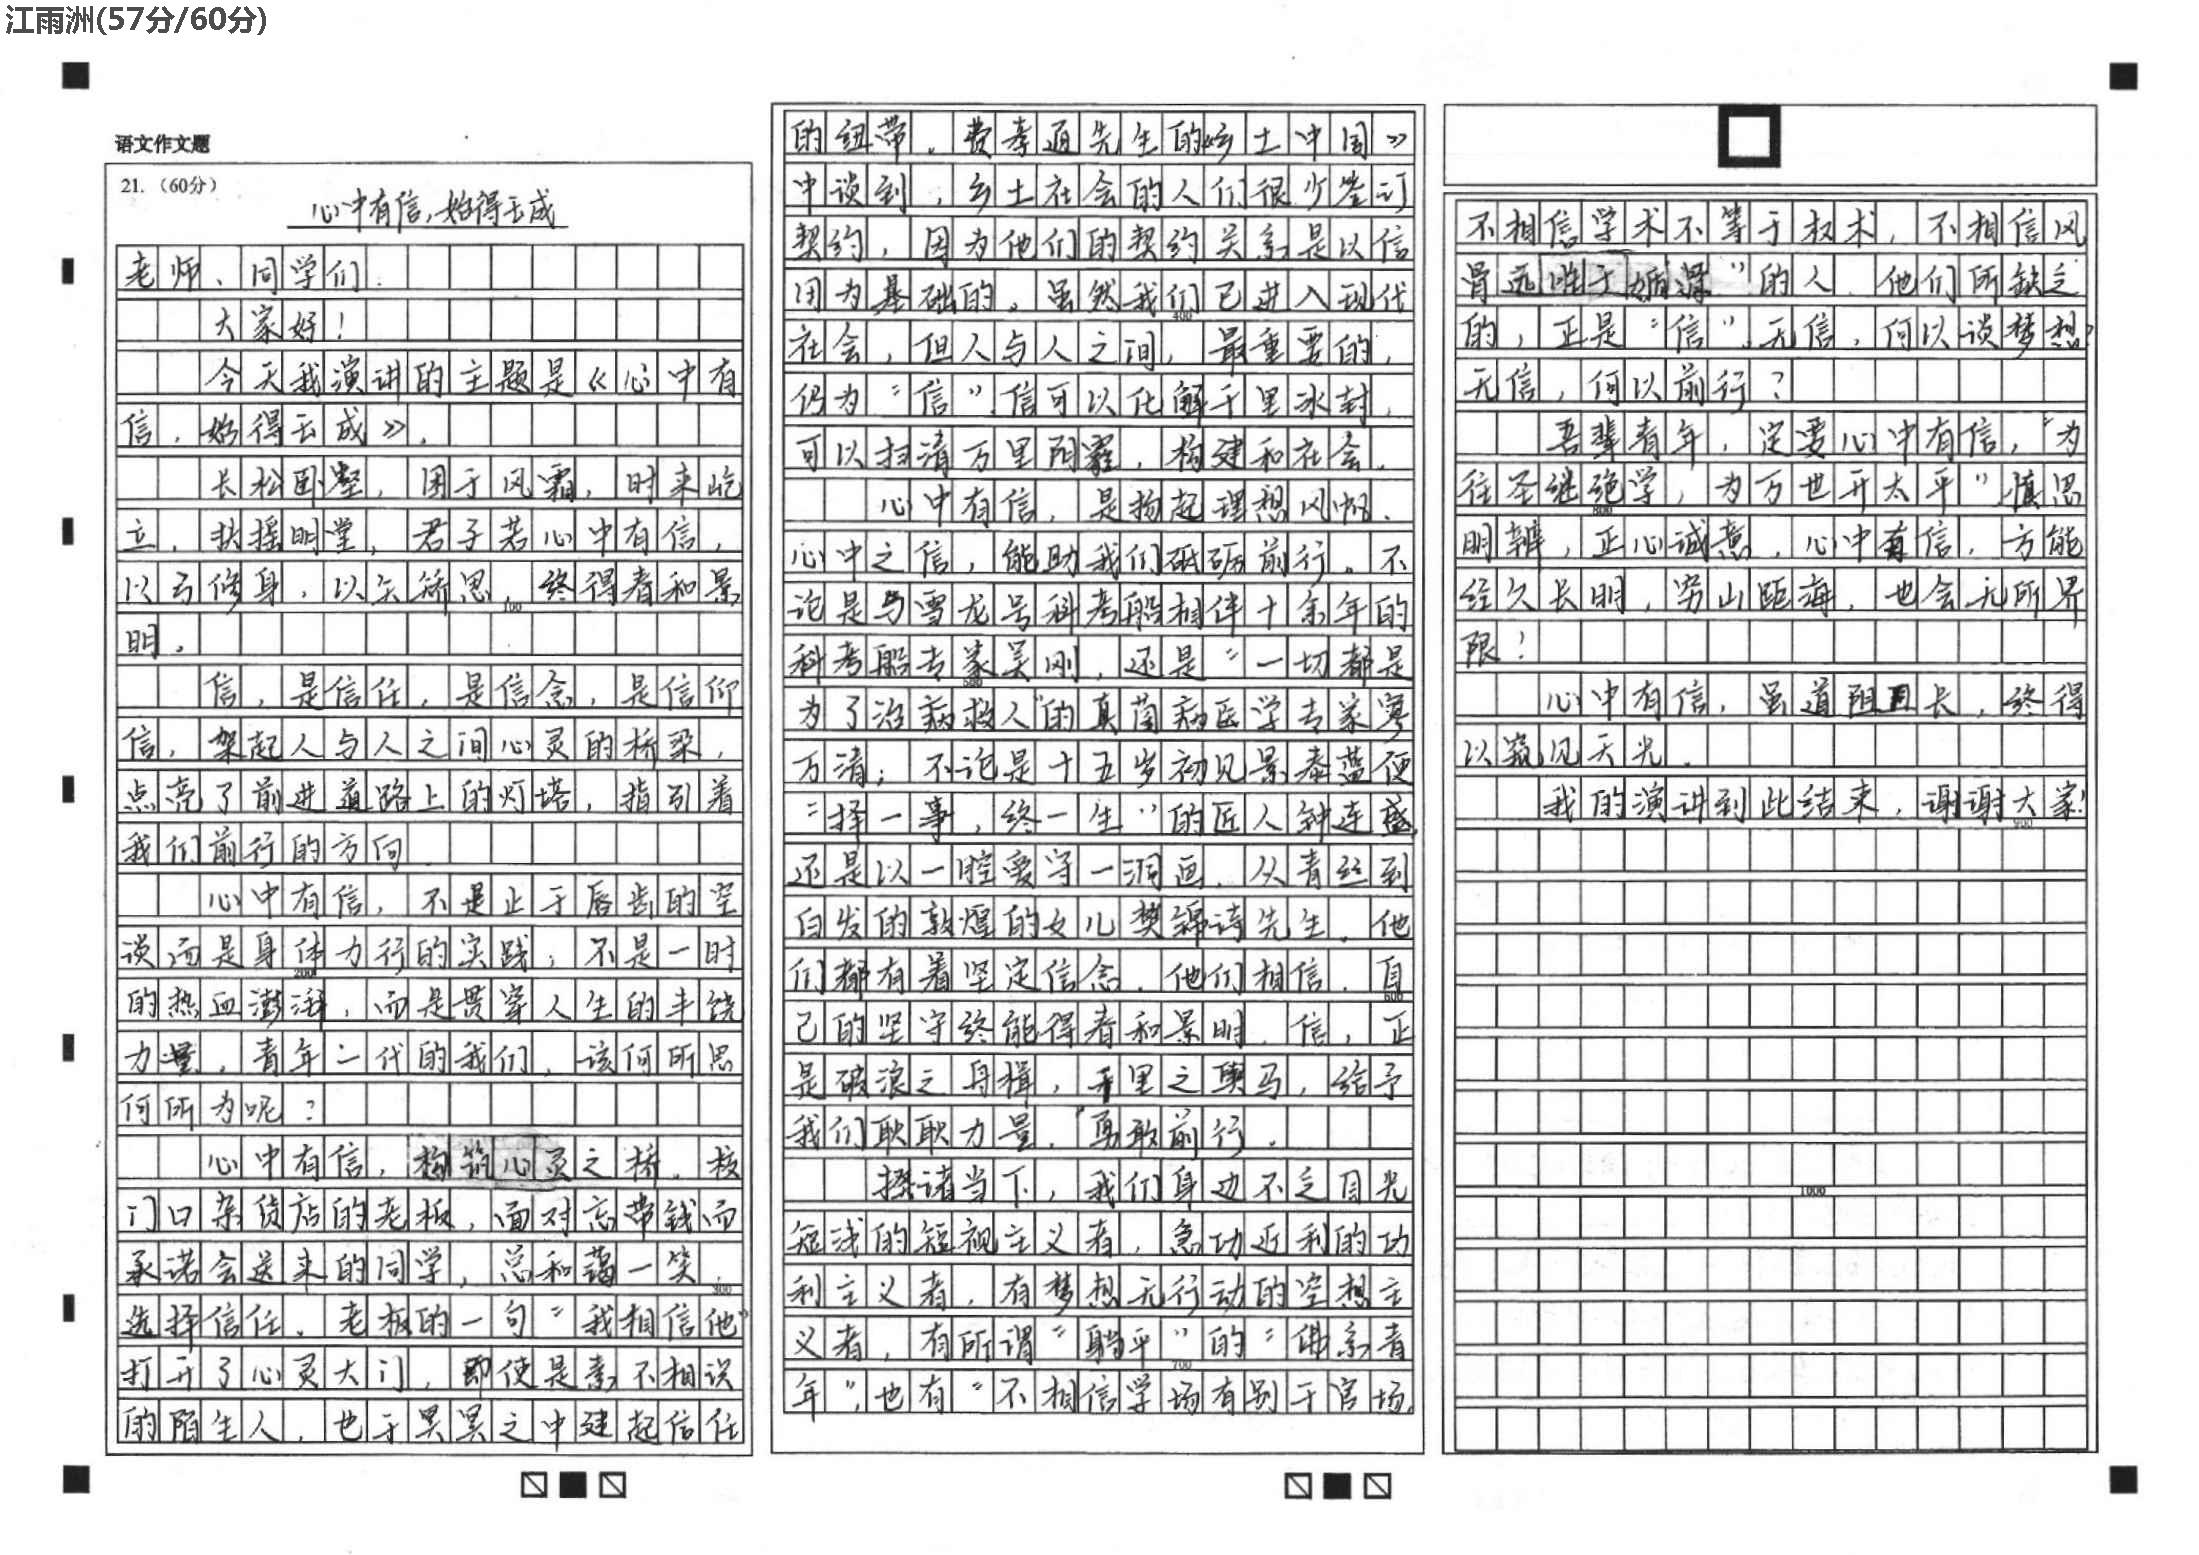 江雨洲(57分/60分)
语文作文题
21.（60分）
心中有信,始得玉成
老师、同学们:
大家好!
今天我演讲的主题是《心中有
信,始得玉成》。
长松卧壑,困于风霜,时来屹
立,扶摇明堂,君子若心中有信,
以弓修身,以矢矫思,终得春和景
明。
信,是信任,是信念,是信仰
信,架起人与人之间心灵的桥梁,
点亮了前进道路上的灯塔,指引着
我们前行的方向
心中有信,不是止于唇齿的空
谈而是身体力行的实践;不是一时
200
的热血澎湃,而是贯穿人生的丰饶
力量,青年一代的我们,该何所思
何所为呢?
心中有信,构筑心灵之桥。校
门口杂货店的老板,面对忘带钱而
承诺会送来的同学,总和蔼一笑,
300
选择信任。老板的一句“我相信他”
打开了心灵大门,即使是素不相识
的陌生人,也于冥冥之中建起信任
的纽带。费孝通先生的《乡土中国》
中谈到,乡土社会的人们很少签订
契约,因为他们的契约关系是以信
用为基础的。虽然我们已进入现代
400
社会,但人与人之间,最重要的,
仍为“信”。信可以化解千里冰封,
可以扫清万里阴霾,构建和社会。
心中有信,是扬起理想风帆。
心中之信,能助我们砥砺前行。不
论是与雪龙号科考船相伴十余年的
科考船专家吴刚,还是“一切都是
500
为了治病救人”的真菌病医学专家廖
万清;不论是十五岁初见景泰蓝便
“择一事,终一生”的匠人钟连盛,
还是以一腔爱守一洞画,从青丝到
白发的敦煌的女儿樊锦诗先生。他
们都有着坚定信念。他们相信,自
600
己的坚守终能得春和景明。信,正
是破浪之舟楫,千里之舆马,给予
我们耿耿力量,勇敢前行。
揆诸当下,我们身边不乏目光
短浅的短视主义者,急功近利的功
利主义者,有梦想无行动的空想主
义者,有所谓“躺平”的“佛系青
700
年”,也有“不相信学场有别于官场,
不相信学术不等于权术,不相信风
骨远胜于媚骨”的人。他们所缺乏
的,正是“信”。无信,何以谈梦想?
无信,何以前行?
吾辈青年,定要心中有信,“为
往圣继绝学,为万世开太平”。慎思
800
明辨,正心诚意,心中有信,方能
经久长明,穷山距海,也会无所界
限!
心中有信,虽道阻且长,终得
以窥见天光。
我的演讲到此结束,谢谢大家!
900
1000